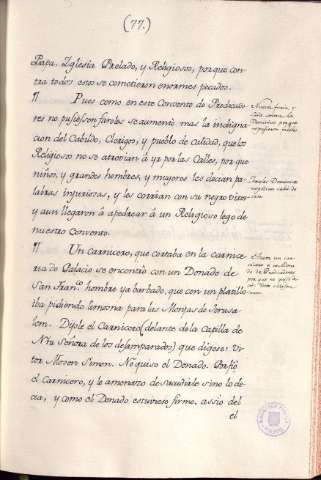 (77.)
Papa, Iglesia Prelado, y Religiosos, porque con
tra todos esto se cometieron enormes pecados.
¶ Pues como en este Convento de Predicado
res no pusiesen faroles se aumentò mas la indigna
cion del Cabildo, Clerigos, y pueblo de calidad, que los
Religiosos no se atrevian à yr por las Calles, porque
niños, y grandes hombres, y mugeres les decian pa
labras injuriosas, y les corrian con su negro vitor
y aun llegaron à apedrear à un Religioso lego de
nuestro Convento.
¶ Un Carnicero, que cortaba en la carnice
ria de Palacio se encontrò con un Donado de
San Franco hombre ya barbado, que con un platillo
iba pidiendo limosna para las Monjas de Jerusa
lem. Dijole el Carnicero (delante de la Capilla de
Nra Señora de los desamparados) que digese: Vi
tor Mosen Simon. No quiso el Donado. Porfiò
el Carnicero, y le amenazò de sacudirle sino lo de
cia, y como el Donado estuviese firme, assiò del
el